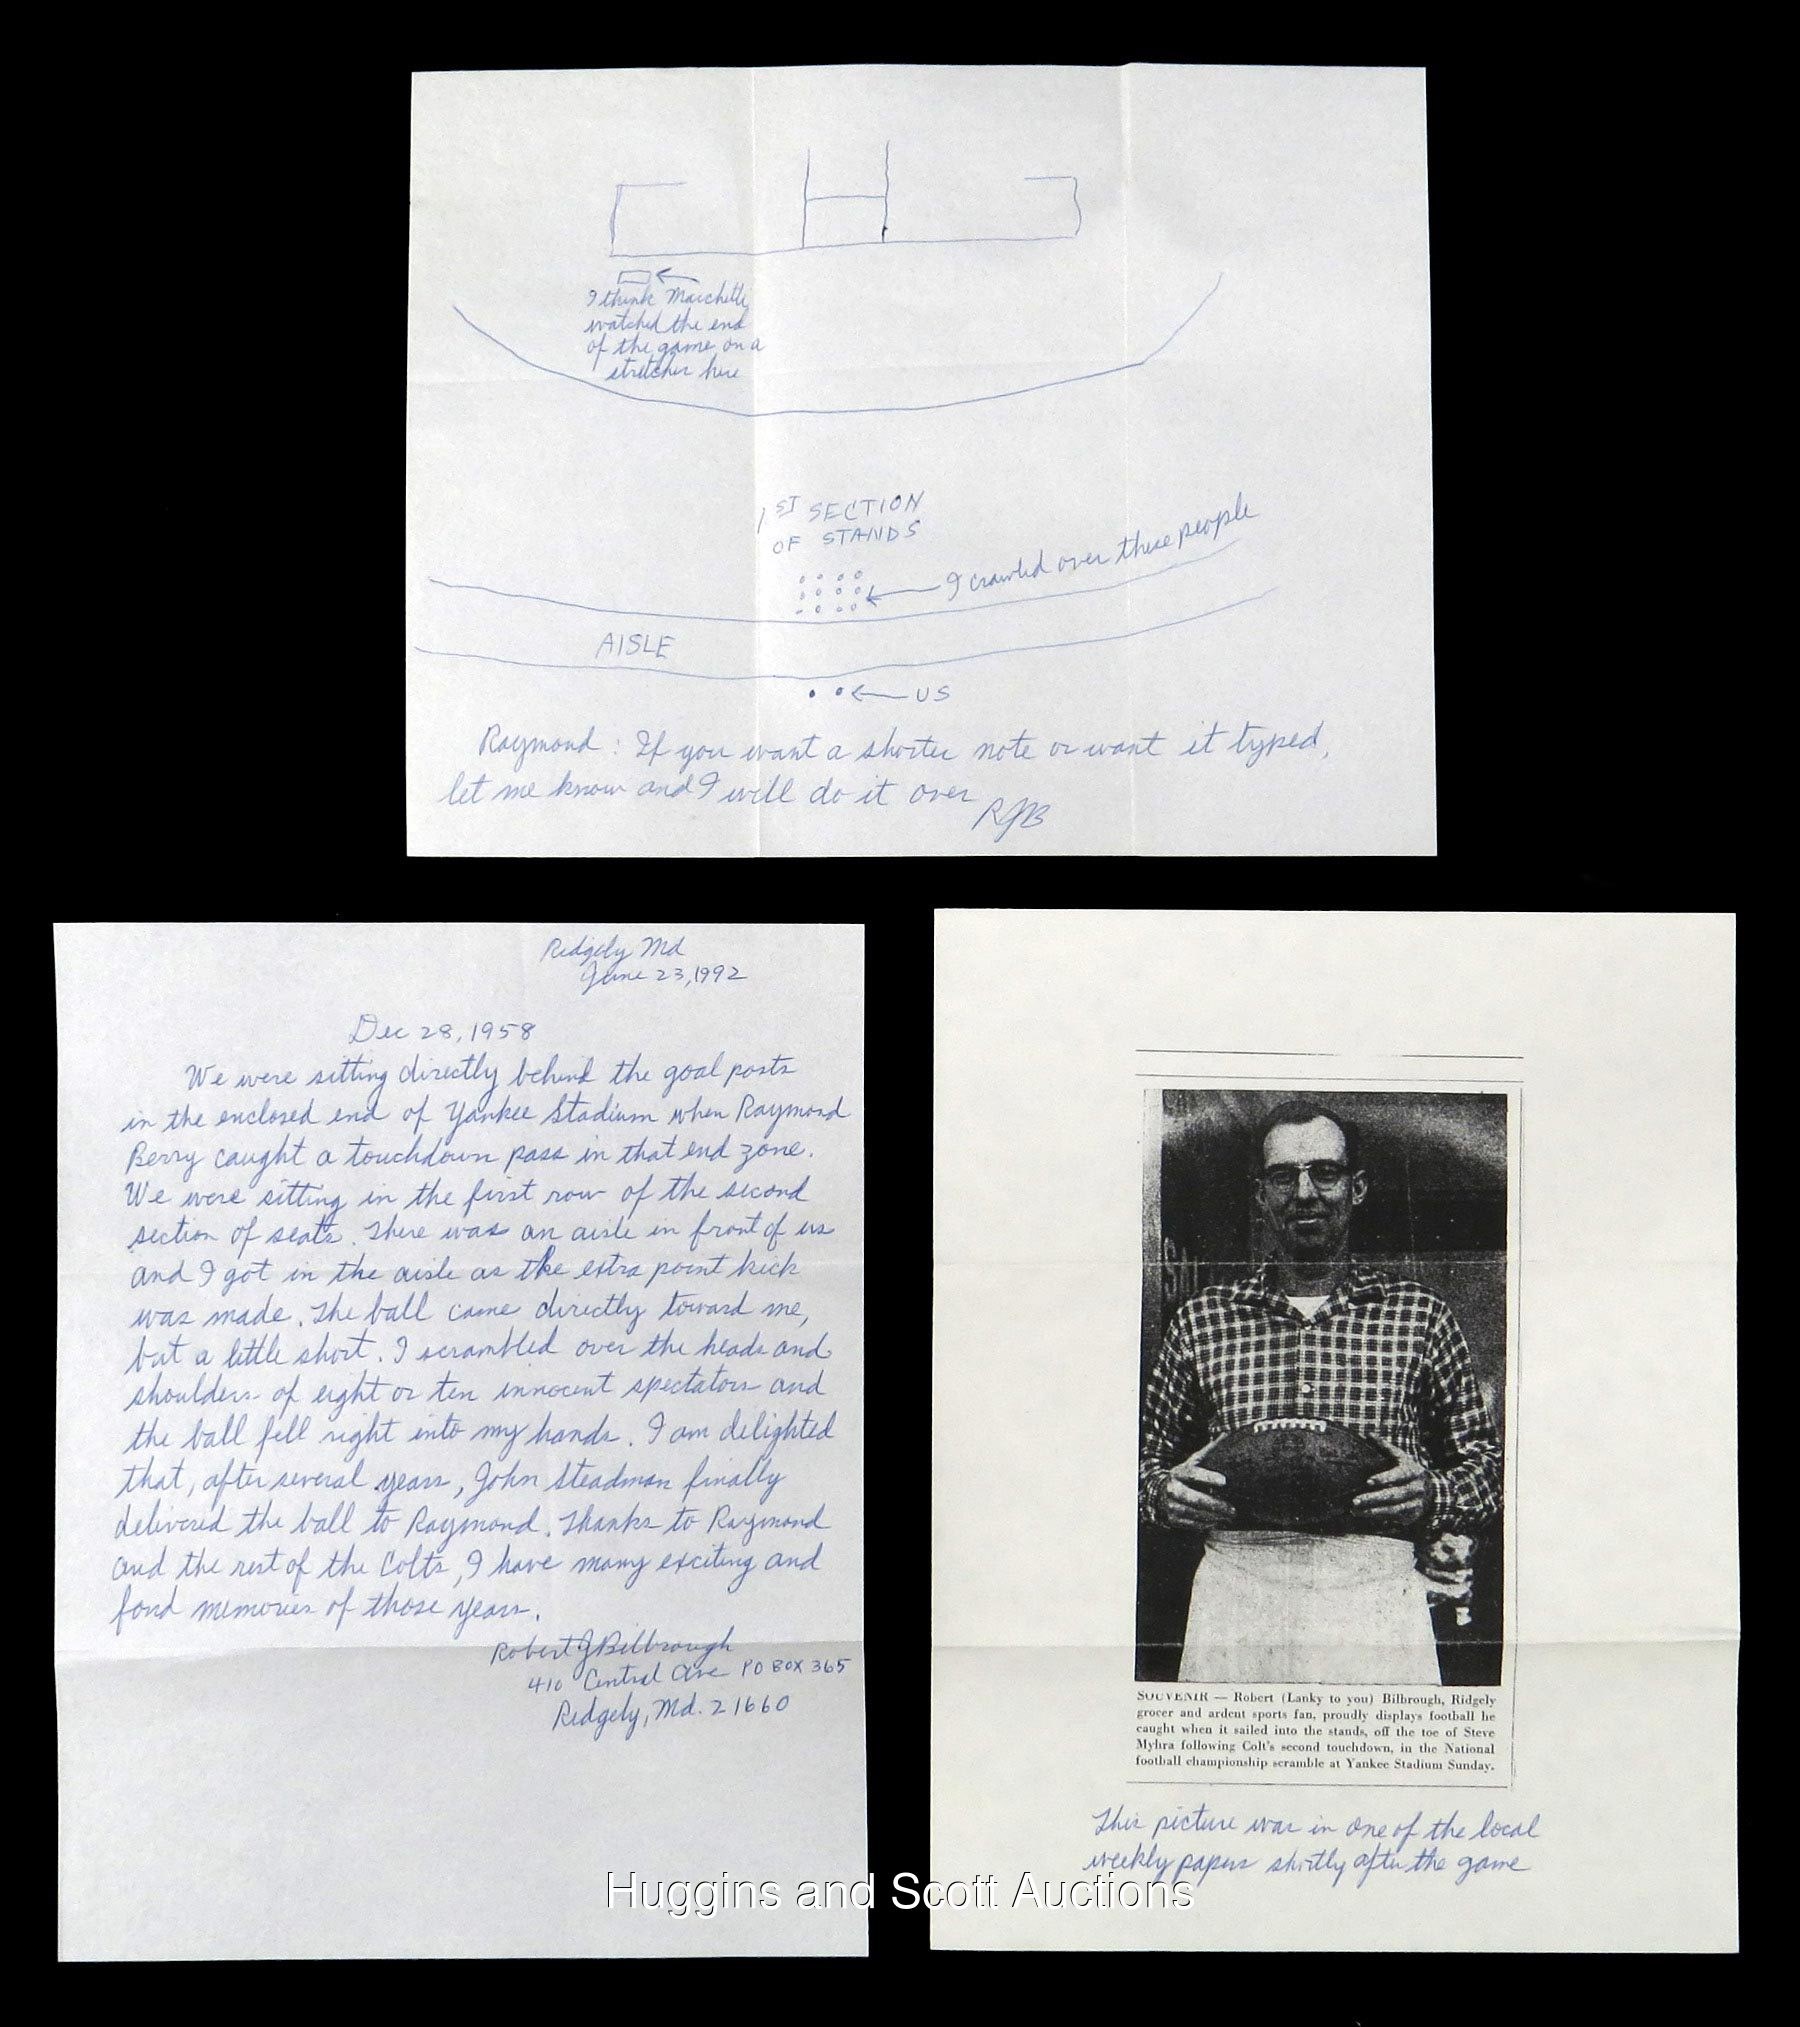 I think Marchetti
watched the end
of the game on a
stretcher here
1ST SECTION
OF STANDS
I crawled over these people
AISLE
US
Raymond: If you want a shorter note or want it typed,
let me know and I will do it over
RJB
Ridgely Md
June 23, 1992
Dec 28, 1958
We were sitting directly behind the goal posts
in the enclosed end of Yankee Stadium when Raymond
Berry caught a touchdown pass in that end zone.
We were sitting in the first row of the second
section of seats. There was an aisle in front of us
and I got in the aisle as the extra point kick
was made. The ball came directly toward me,
but a little short. I scrambled over the heads and
shoulders of eight or ten innocent spectators and
the ball fell right into my hands. I am delighted
that, after several years, John Steadman finally
delivered the ball to Raymond. Thanks to Raymond
and the rest of the Colts, I have many exciting and
fond memories of those years.
Robert J Bilbrough
410 Central Ave PO BOX 365
Ridgely, Md. 21660
SOUVENIR — Robert (Lanky to you) Bilbrough, Ridgely
grocer and ardent sports fan, proudly displays football he
caught when it sailed into the stands, off the toe of Steve
Myhra following Colt's second touchdown, in the National
football championship scramble at Yankee Stadium Sunday.
This picture was in one of the local
weekly papers shortly after the game
Huggins and Scott Auctions